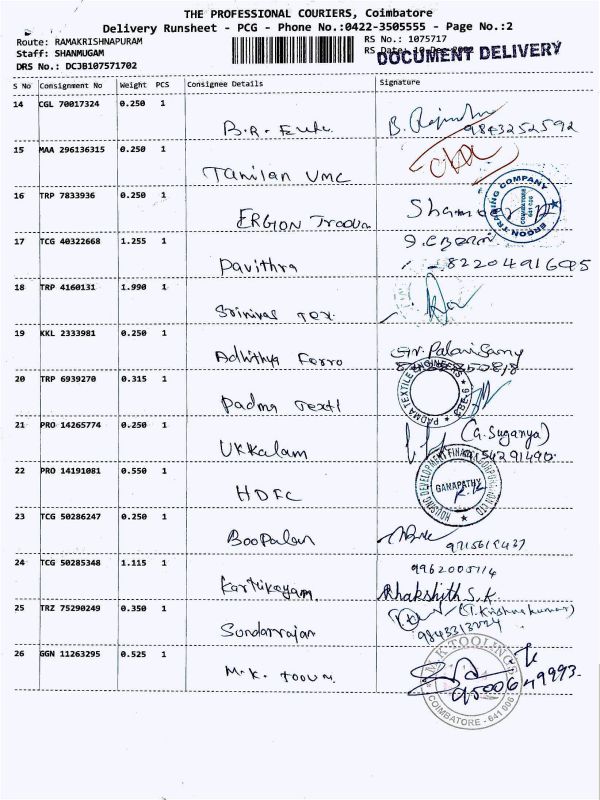 THE PROFESSIONAL COURIERS, Coimbatore
Delivery Runsheet - PCG - Phone No.:0422-3505555 - Page No.:2
Route: RAMAKRISHNAPURAM
RS No.: 1075717
Staff: SHANMUGAM
RS Date: 10 Dec 2022
DOCUMENT DELIVERY
DRS No.: DCJB107571702
S No Consignment No Weight PCS Consignee Details Signature
14 CGL 70017324 0.250 1
B.R.
9843252592
15 MAA 296136315 0.250 1
Tamilan VMC
16 TRP 7833936 0.250 1
ERGON
ERGON TRADING COMPANY
COIMBATORE
641 006
17 TCG 40322668 1.255 1
Pavithra
8220491695
18 TRP 4160131 1.990 1
Srinivas Tex
19 KKL 2333981 0.250 1
Adhithya Ferro
20 TRP 6939270 0.315 1
Padma Textl
PADMA TEXTILE ENGINEERS
21 PRO 14265774 0.250 1
Ukkalam
(G. Suganya)
22 PRO 14191081 0.550 1
HDFC
HOUSING DEVELOPMENT FINANCE CORPORATION LTD
GANAPATHY
23 TCG 50286247 0.250 1
Boopalan
24 TCG 50285348 1.115 1
Kartikeyan
Rhakshith S.K.
25 TRZ 75290249 0.350 1
Sundarrajan
(T. Krishna Kumar)
26 GGN 11263295 0.525 1
M.K.
M.K TOOLINGS
95006 49993
COIMBATORE - 641 006